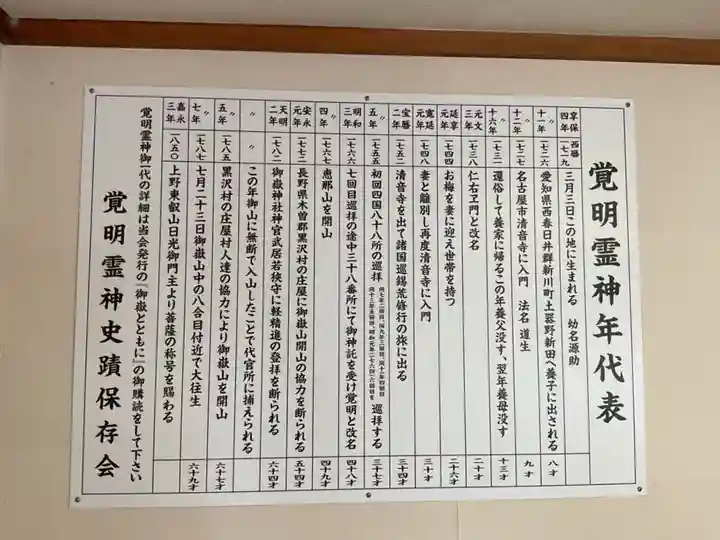 覚明霊神年代表
享保四年 西暦一七一九 三月三日この地に生まれる 幼名源助
〃十一年 一七二六 愛知県西春日井群新川町土器野新田へ養子に出される 八才
〃十二年 一七二七 名古屋市清音寺に入門 法名 道生 九才
〃十六年 一七三一 還俗して養家に帰るこの年養父没す、翌年養母没す 十三才
元文三年 一七三八 仁右ヱ門と改名 二十才
延享元年 一七四四 お梅を妻に迎え世帯を持つ 二十六才
寛延元年 一七四八 妻と離別し再度清音寺に入門 三十才
宝暦二年 一七五二 清音寺を出て諸国巡錫荒修行の旅に出る 三十四才
〃五年 一七五五 初回四国八十八所の巡拝 巡拝する 三十七才
明和三年 一七六六 七回目巡拝の途中三十八番所にて御神託を受け覚明と改名 四十八才
〃四年 一七六七 恵那山を開山 四十九才
安永元年 一七七二 長野県木曽郡黒沢村の庄屋に御嶽山開山の協力を断られる 五十四才
天明二年 一七八二 御嶽神社神官武居若狭守に軽精進の登拝を断られる 六十四才
〃 〃 この年御山に無断で入山したことで代官所に捕えられる
〃五年 一七八五 黒沢村の庄屋村人達の協力により御嶽山を開山 六十七才
〃七年 一七八七 七月二十三日御嶽山中の八合目付近で大往生 六十九才
嘉永三年 一八五〇 上野東叡山日光御門主より菩薩の称号を賜わる
覚明霊神御一代の詳細は当会発行の『御嶽とともに』の御購読をして下さい
覚明霊神史蹟保存会